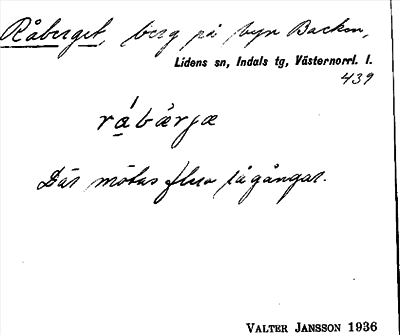 Råberget, berg på byn Backen,
Lidens sn, Indals tg, Västernorrl. l.
439
rábàrjæ
Där mötas flera rågångar.
VALTER JANSSON 1936